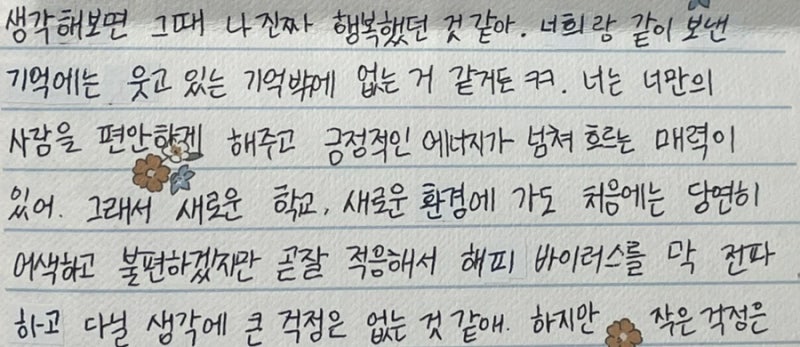 생각해보면 그때 나 진짜 행복했던 것 같아. 너희랑 같이 보낸
기억에는 웃고 있는 기억밖에 없는 거 같거든 ㅋㅋ. 너는 너만의
사람을 편안하게 해주고 긍정적인 에너지가 넘쳐 흐르는 매력이
있어. 그래서 새로운 학교, 새로운 환경에 가도 처음에는 당연히
어색하고 불편하겠지만 곧잘 적응해서 해피 바이러스를 막 전파
하고 다닐 생각에 큰 걱정은 없는 것 같애. 하지만 작은 걱정은